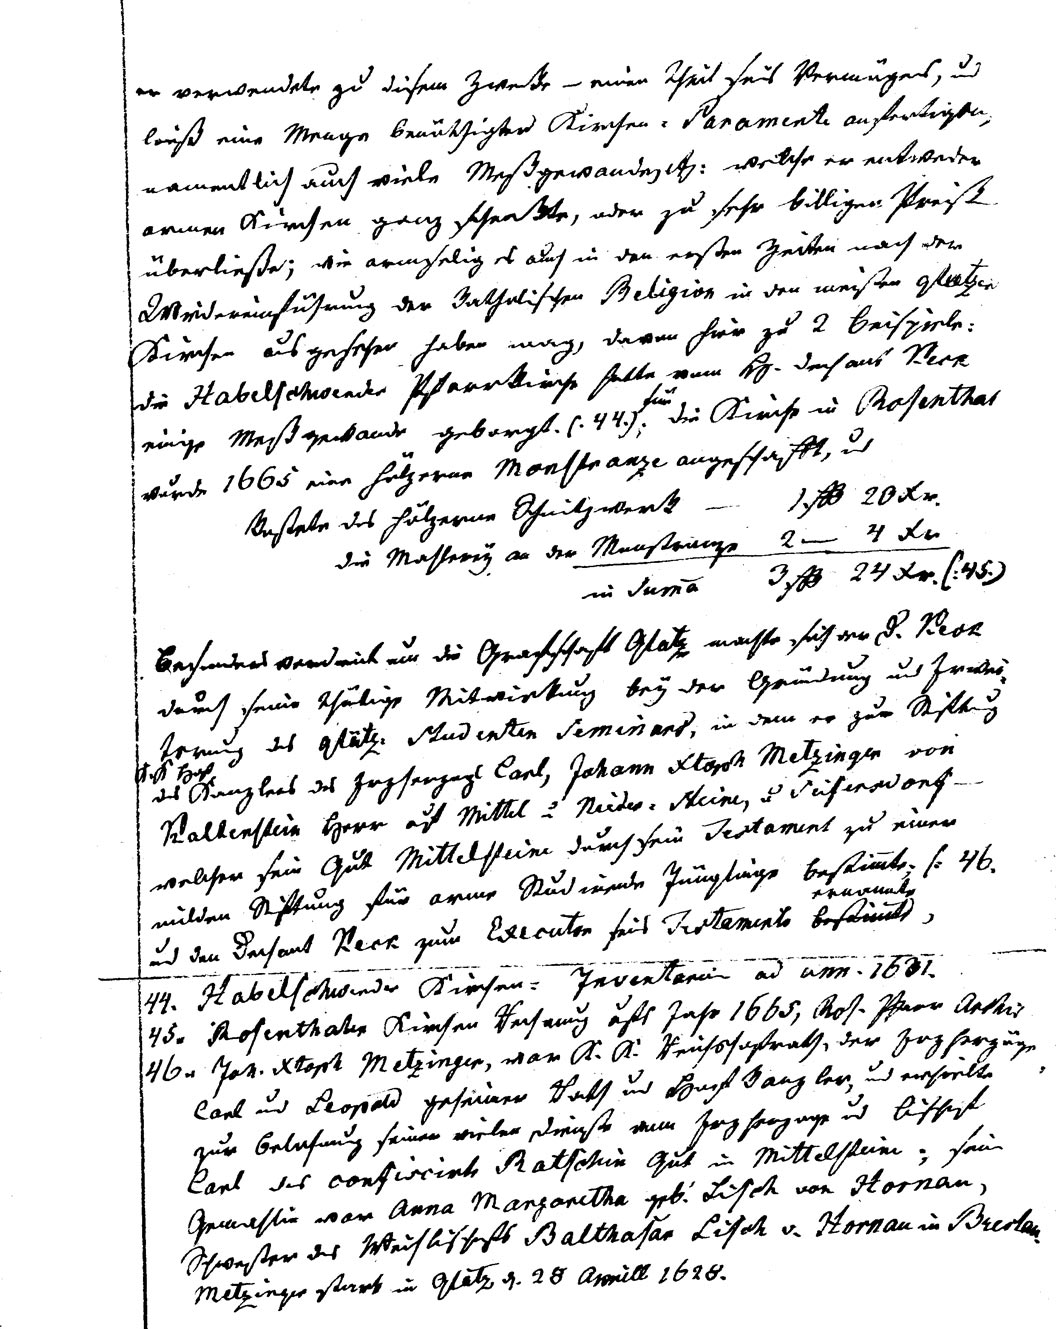 er verwendete zu diesem Zwecke – einen Theil seines Vermögens, und
ließ eine Menge benöthigter Kirchen = Paramente anfertigen,
namentlich auch viele Meßgewande, welche er entweder
armen Kirchen ganz schenkte, oder zu sehr billigen Preiß
überließe; wie armselig es auch in den ersten Zeiten nach der
Widereinführung der Katholischen Religion in den meisten glatzer
Kirchen ausgesehen haben mag, davon hier zu 2 Beispiele:
die Habelschwerder Pfarrkirche hatte vom H. Dechant Keck
einige Meßgewande geborgt. (: 44.) für die Kirche in Rosenthal
wurde 1665 eine hölzerne Monstranze angeschafft, und
kostete des hölzerne Schnitzwerk — 1 fl 20 Xr.
die Mahlerey an der Monstranze 2 — 4 Xr
in Suma 3 fl 24 Xr. (: 45.)
Besonders verdient um die Grafschaft Glatz machte sich der D. Keck
durch seine thätige Mitwirkung bey der Gründung und Erwei=
terung des glätz. Studenten Seminars, in dem er zur Stiftung
K. K Hof
des Kanzlers des Erzherzogs Carl, Johann Xtoph Metzinger von
Kaltenstein Herr auf Mittel u Nieder = Steine, u
welcher sein Gut Mittelsteine durch sein Testament zu einer
milden Stiftung für arme Studirende Jünglinge bestimte, (: 46.
ernannte
und den Dechant Keck zum Executor seines Testaments bestimte,
44. Habelschwerder Kirchen = Inventarium ad ann. 1631.
45. Rosenthaler Kirchen Rechnung aufs Jahr 1665, Ros. Pfarr Archiv
46. Joh. Xtoph Metzinger, war K. K. Reichshofrath, der Erzherzöge
Carl und Leopold geheimer Rath und Hof Kanzler, und erhielte
zur Belohnung seiner vielen Dienste vom Erzherzoge und Bischof
Carl das confiscirte Ratschin Gut in Mittelsteine; sein
Gemahlin war Anna Margaretha geb. Lisch von Hornau,
Schwester des Weihbischofs Balthasar Lisch v. Hornau in Breslau.
Metzinger starb in Glatz d. 28 Aprill 1628.